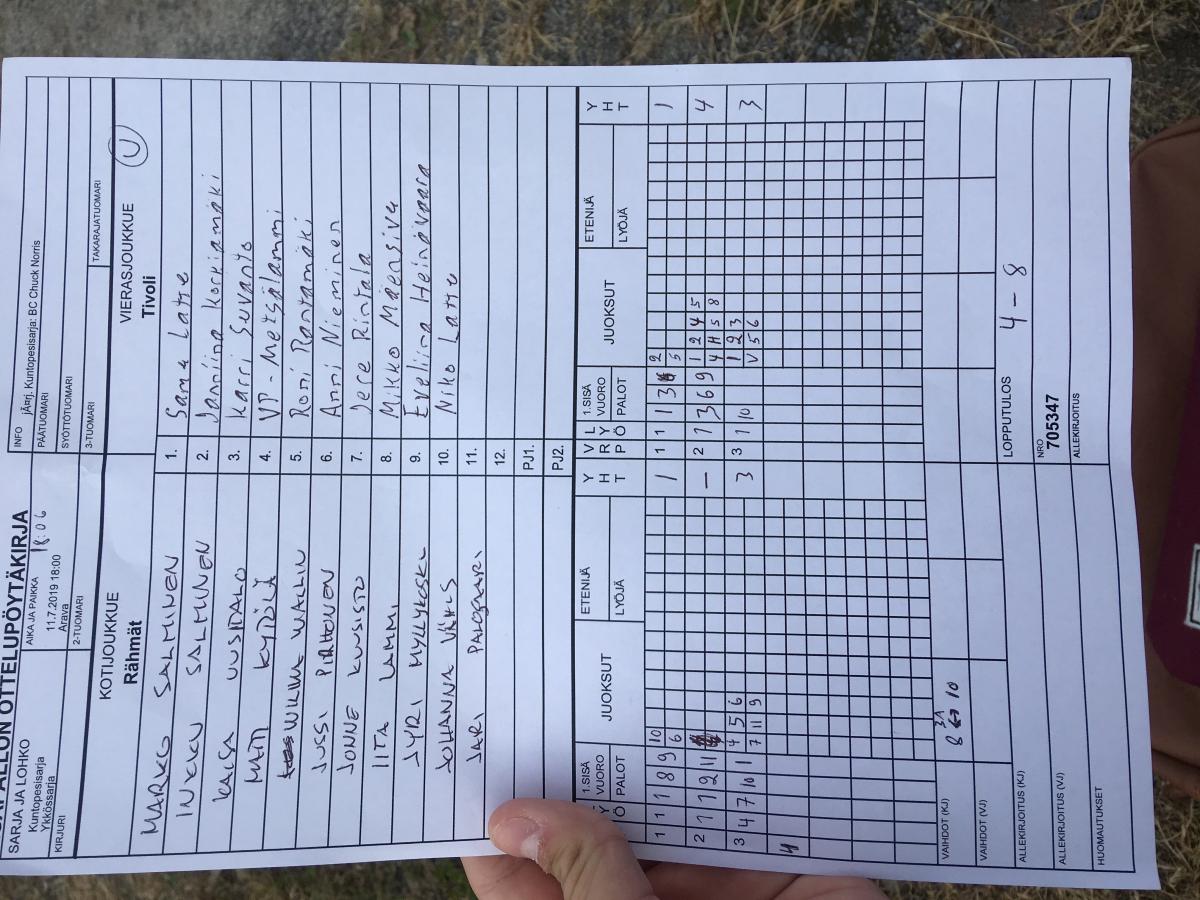 PALLON OTTELUPÖYTÄKIRJA
SARJA JA LOHKO
Kuntopesisarja
Ykkössarja
AIKA JA PAIKKA 18:06
11.7.2019 18:00
Arava
INFO järj. Kuntopesisarja: BC Chuck Norris
PÄÄTUOMARI
SYÖTTÖTUOMARI
KIRJURI
2-TUOMARI
3-TUOMARI
TAKARAJATUOMARI
KOTIJOUKKUE
Rähmät
VIERASJOUKKUE
Tivoli
U
MARKO SALMINEN 1. Samu Latte
INKKU SALMINEN 2. Janniina Korkiamäki
KAISA UUSITALO 3. Karri Suvanto
MATTI KYTÖLÄ 4. VP-Metsälammi
WILIINA WALLIN 5. Roni Rantamäki
JUSSI PIRHONEN 6. Anni Nieminen
JONNE KUUSISTO 7. Jere Rintala
IITA LAMMI 8. Mikko Mäensivu
JYRI MYLLYKOSKI 9. Eveliina Heinävaara
JOHANNA 10. Niko Latte
JARI PALOSAARI 11.
12.
PJ1.
PJ2.
Ö 1.SISÄ VUORO PALOT JUOKSUT ETENIJÄ LYÖJÄ YHT VRP LYÖ 1.SISÄ VUORO PALOT JUOKSUT ETENIJÄ LYÖJÄ YHT
1 1 1 8 9 10 1 1 1 1 3 2 1
6 5
2 1 7 2 11 – 2 7 3 6 9 1 2 4 5 4
4 H 5 8
3 4 7 10 1 4 5 6 3 3 1 10 1 2 3 3
7 11 9 V 5 6
4
VAIHDOT (KJ) 8 3A 10
VAIHDOT (VJ)
LOPPUTULOS 4 – 8
ALLEKIRJOITUS (KJ)
NRO
705347
ALLEKIRJOITUS (VJ)
ALLEKIRJOITUS
HUOMAUTUKSET